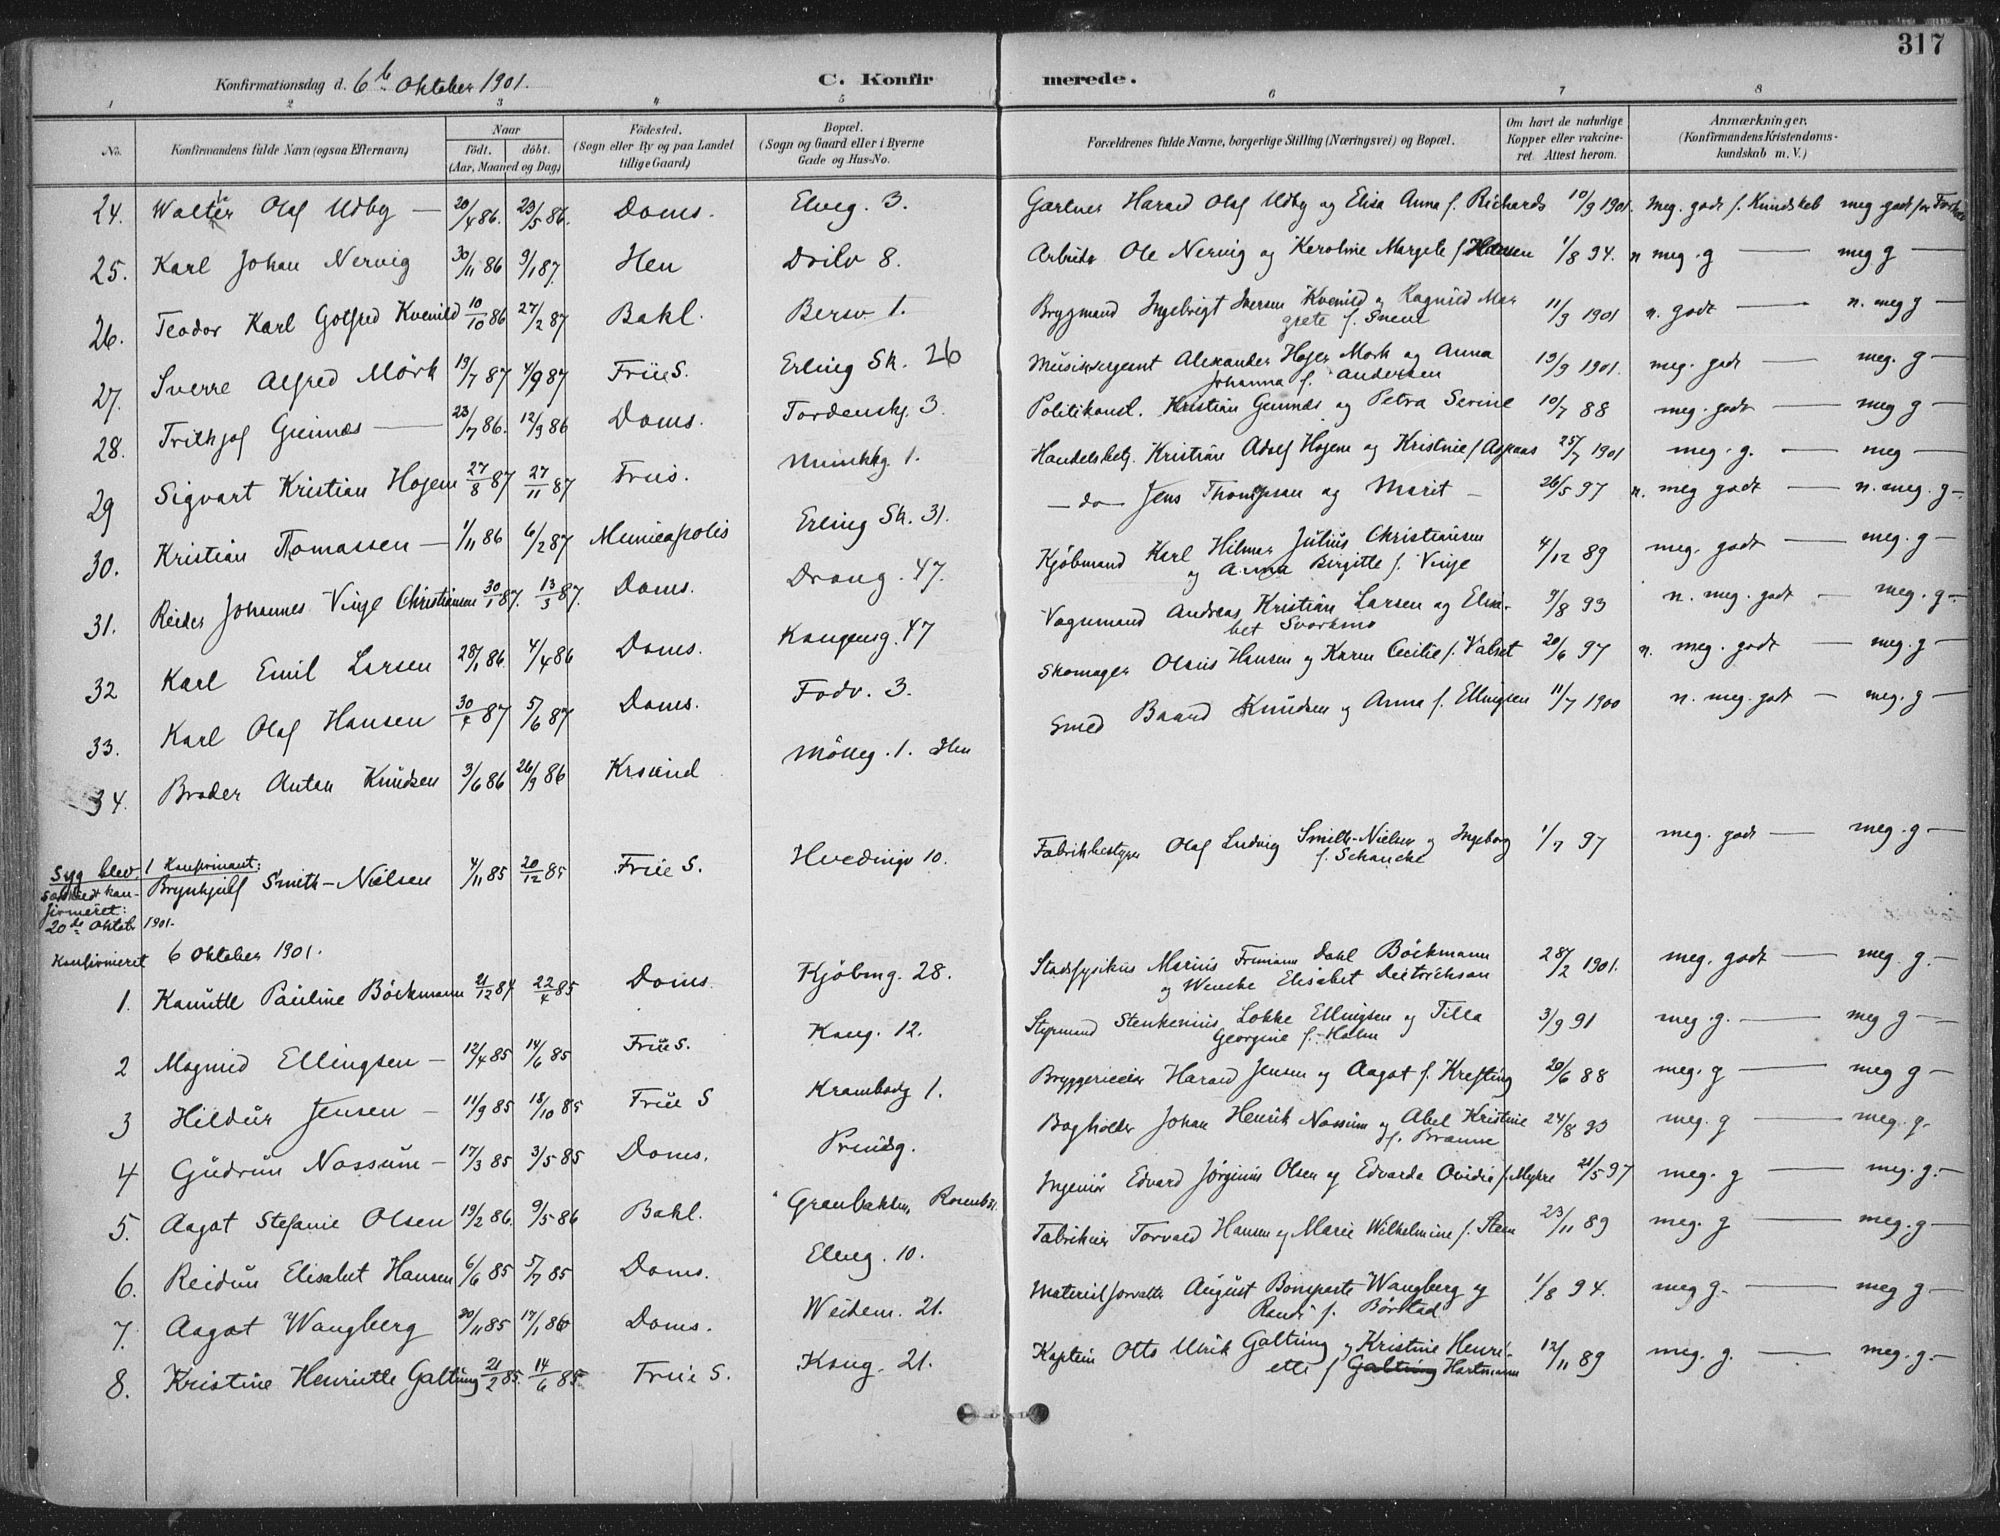 317
Konfirmationsdag d. 6te Oktober 1901. C. Konfirmerede.
1 2 3 4 5 6 7 8
No. Konfirmandens fulde Navn (ogsaa Efternavn) Naar Födt. döbt. (Aar, Maaned og Dag) Födested. (Sogn eller By og paa Landet tillige Gaard) Bopæl. (Sogn og Gaard eller i Byerne Gade og Hus-No. Forældrenes fulde Navne, borgerlige Stilling (Næringsvei) og Bopæl. Om havt de naturlige Kopper eller vakcineret. Attest herom. Anmærkninger. (Konfirmandens Kristendomskundskab m. V.)
24. Walter Olaf Udby — 20/4 86. 23/5 86. Doms. Elveg. 3. Gartner Harald Olaf Udby og Elisa Anna f. Richards 10/9 1901. meg. godt f. Kundskab meg godt for
25. Karl Johan Nervig 30/11 86 9/1 87. Hen Driiv 8. Arbeider Ole Nervig og Keroline Margete f. Hansen 1/8 94. n meg. g — meg g —
26. Teodor Karl Gotfred Kvenild 10/10 86 27/2 87 Bakl. Bersv 1. Brygmand Ingebrigt Iversen Kvenild og Ragnild Mar
grete f. Svene 11/9 1901 n. godt — n. meg g —
27. Sverre Alfred Mörk 19/7 87 4/9 87 Früe S. Erling Sk. 26 Musiksergeant Alexander Hojer Mörk og Anna
Johanna f. Andersen 19/9 1901. meg. godt — meg. g —
28. Frithjof Gumnæs — 23/7 86. 12/9 86 Doms. Tordenskj. 3. Politikonst. Kristian Gumnæs og Petra Serine 10/7 88 meg. godt — meg g —
29 Sigvart Kristian Hojem 27/8 87 27/11 87 Früs. Munkkg. 1. Handelsbetj. Kristian Adolf Hojem og Kristine f Aspaas 25/7 1901 meg. g. — meg —
30. Kristian Tomassen — 1/11 86 6/2 87 Minneapolis Erling Sk. 31. — do — Jens Thompson og Marit — 26/5 97 n. meg godt — n. meg. g —
31. Reider Johannes Vinje Christiansen 30/1 87. 13/3 87. Doms. Drong. 47. Kjöbmand Karl Hilmar Julius Christiansen
og Anna Birgitte f. Vinje 4/12 89 meg. godt — meg. g —
32 Karl Emil Larsen 28/1 86. 4/4 86 Doms. Kongensg. 47 Vognmand Andreas Kristian Larsen og Elisa-
bet Svorkmo 9/8 93 n. meg. godt — meg. g —
33. Karl Olaf Hansen 30/4 87 5/6 87 Doms. Fodv. 3. Skomager Olaus Hansen og Karen Cecilie f. Valset 20/6 97 n. meg. godt — meg. g —
34. Broder Anton Knudsen 3/6 86 26/9 86 Krsund Mölleg. 1. Ihlen Smed Baard Knudsen og Anna f. Ellingsen 11/7 1900 n. meg. godt — meg. g —
Syg blev 1 Konfirmant:
særskilt kon-
firmeret:
20de Oktob 1901.
Brynhjulf Smith-Nielsen 4/11 85 20/12 85 Früe S. Hvedingv 10. Fabrikbestyrer Olaf Ludvig Smith-Nielsen og Ingeborg
f. Schancke 1/7 97 meg. godt — meg. g —
Konfirmeret 6 Oktober 1901.
1. Kanutte Pauline Böckmann 21/12 84 22/4 85 Doms. Kjöbmg. 28. Stadsfysikus Marius Frimann Dahl Böckmann
og Wencke Elisabet Dietrichson 28/2 1901. meg. godt — meg. g. —
2 Magnild Ellingsen — 12/4 85 14/6 85 Früe S. Kong. 12. Styrmand Stenkenius Lokke Ellingsen og Tilla
Georgine f. Holm 3/9 91 meg. g. — meg g —
3 Hildur Jensen — 11/9 85 18/10 85 Früe S Krambodg 1. Bryggerieeier Harald Jensen og Aagot f. Krefting 20/6 88 meg. g — meg g —
4 Gudrun Nossum — 17/3 85 3/5 85 Doms. Prindsg. Bogholder Johan Henrik Nossum og Abel Kristine
f. Bramne 24/8 93 meg. g — meg. g.
5. Aagot Stefanie Olsen 19/2 86. 9/5 86 Bakl. Granbakken, Rosenborg Ingeniör Edvard Jörginus Olsen og Edvarda Ovidie f. Myhre 21/5 97 meg. g — meg. g. —
6. Reidun Elisabet Hansen 6/6 85 5/7 85 Doms. Elveg. 10. Fabrikeier Torvald Hansen og Marie Wilhelmine f. Steen 23/11 89 meg. g — meg. g —
7. Aagot Wangberg 20/11 85 17/1 86 Doms. Weidem. 21. Materialforvalter August Bonaparte Wangberg og
Randi f. Börstad 1/8 94. meg g. — meg g —
8. Kristine Henriette Galtung 21/2 85. 14/6 85 Früe S. Kong. 21. Kaptein Otto Ulrik Galtung og Kristine Henri-
ette f Galtung Hartmann 12/11 89 meg. g. — meg. g. —